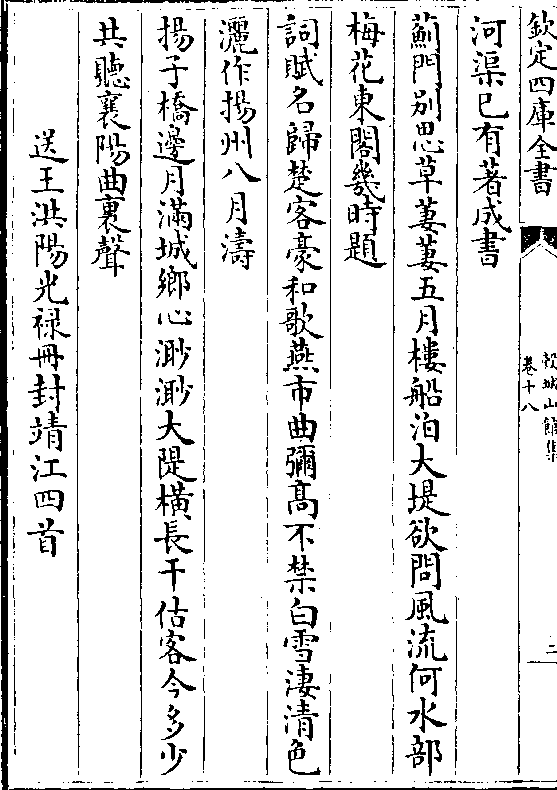 欽定四庫全書
穀城山館集
卷十八
二
河渠已有著成書
薊門别思草萋萋五月樓船泊大堤欲問風流何水部
梅花東閣幾時題
詞賦名歸楚客豪和歌燕市曲彌髙不禁白雪淒清色
灑作揚州八月濤
揚子橋邊月滿城鄉心渺渺大隄横長干估客今多少
共聽襄陽曲裏聲
送王洪陽光禄冊封靖江四首